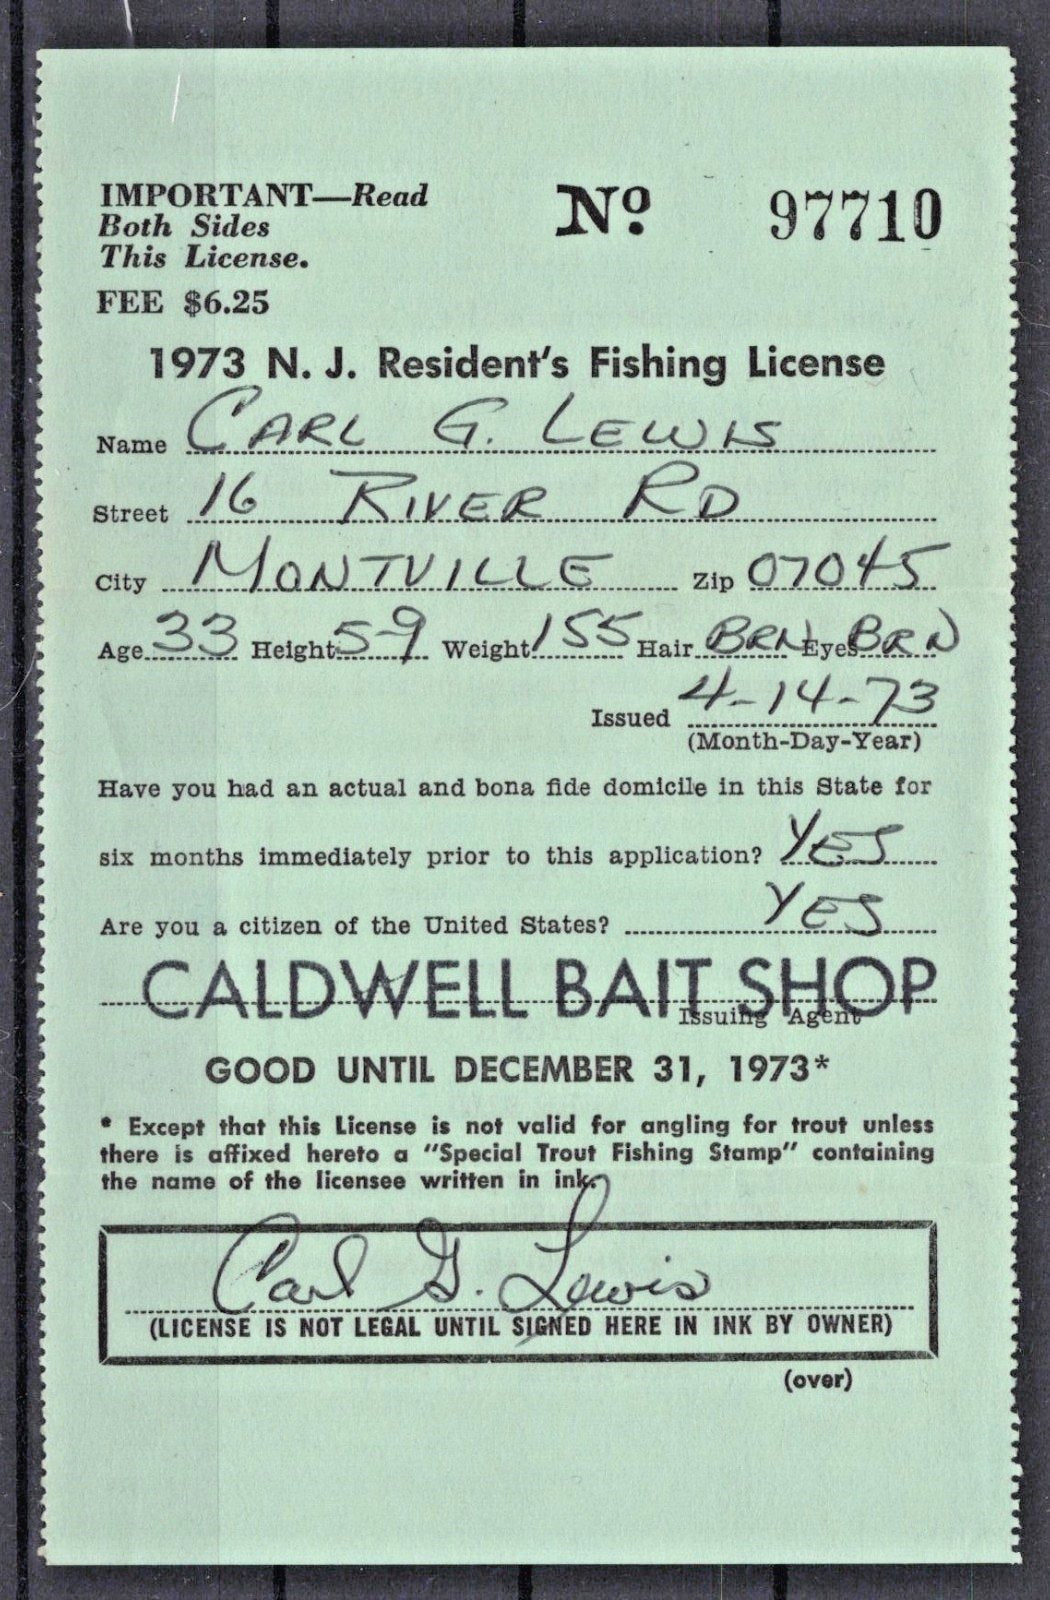 IMPORTANT—Read
Both Sides
This License.
No. 97710
FEE $6.25
1973 N. J. Resident's Fishing License
Name CARL G. LEWIS
Street 16 RIVER RD
City MONTVILLE Zip 07045
Age 33 Height 5-9 Weight 155 Hair BRN Eyes BRN
Issued 4-14-73
(Month-Day-Year)
Have you had an actual and bona fide domicile in this State for
six months immediately prior to this application? YES
Are you a citizen of the United States? YES
CALDWELL BAIT SHOP
Issuing Agent
GOOD UNTIL DECEMBER 31, 1973*
* Except that this License is not valid for angling for trout unless
there is affixed hereto a "Special Trout Fishing Stamp" containing
the name of the licensee written in ink.
Carl G. Lewis
(LICENSE IS NOT LEGAL UNTIL SIGNED HERE IN INK BY OWNER)
(over)